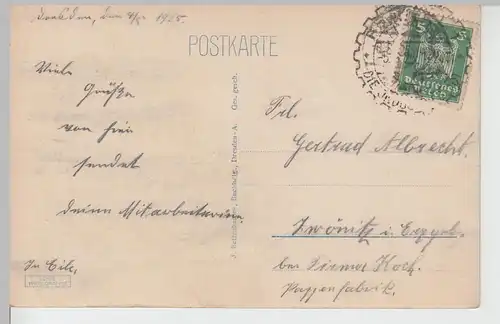 Dresden, den 4/5 1925
POSTKARTE
Viele
Grüße
von hier
sendet
deine Mitarbeiterin
In Eile.
Ges. gesch.
Dresden-A.
5
Deutsches
Reich
Frl.
Gertrud Albrecht.
Zwönitz i. Erzgeb.
bei Firma Koch.
Pappenfabrik.